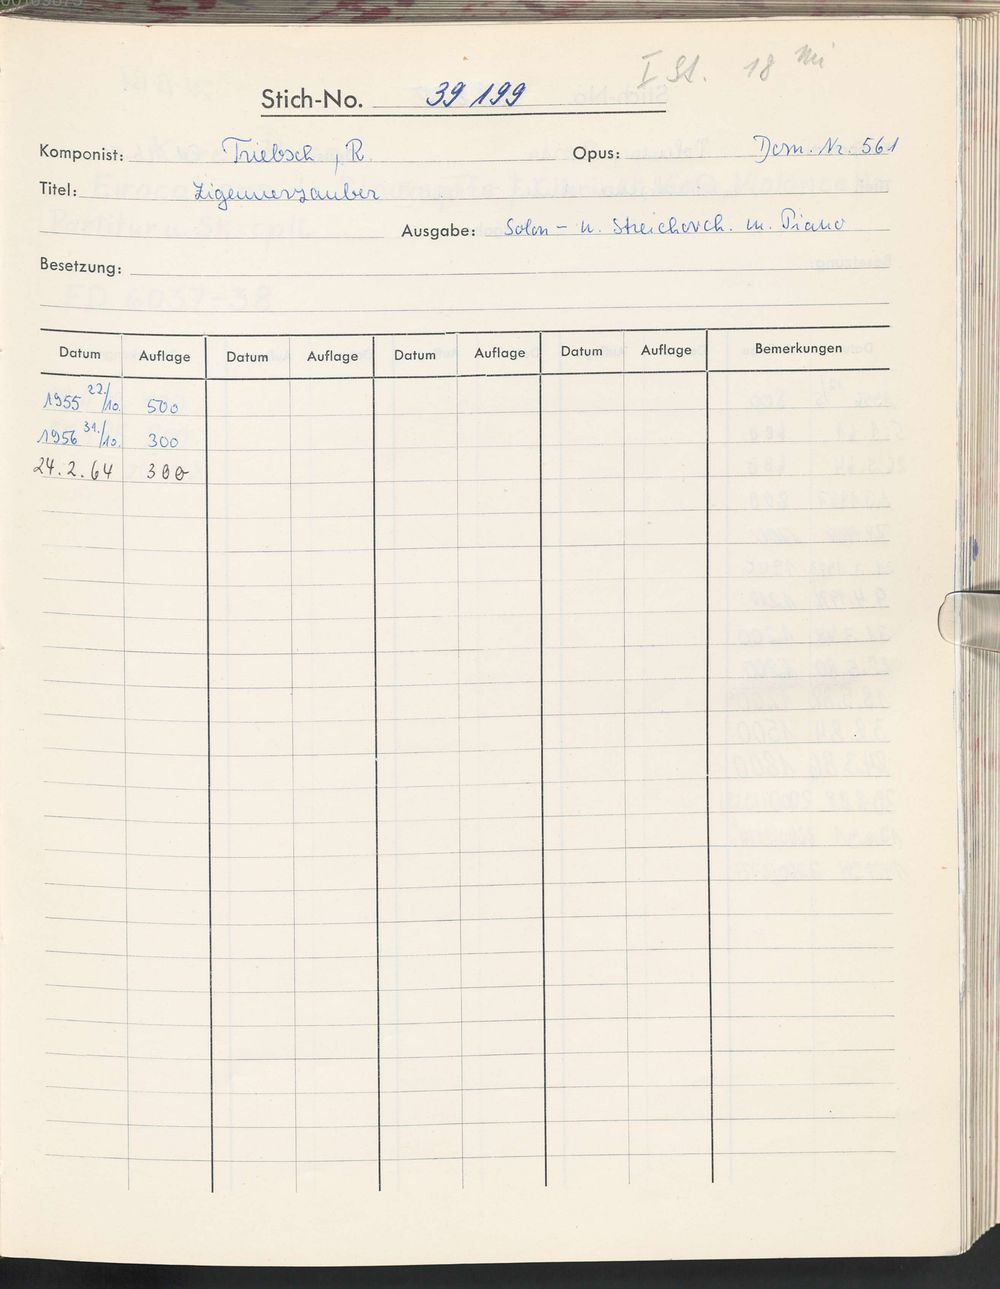 I St. 18
Stich-No. 39 199
Komponist: Triebsch, R Opus: Dom. Nr. 561
Titel: Zigeunerzauber
Ausgabe: Salon- u. Streichorch. m. Piano
Besetzung:
Datum Auflage Datum Auflage Datum Auflage Datum Auflage Bemerkungen
1955 22./10. 500
1956 31./10. 300
24.2.64 300